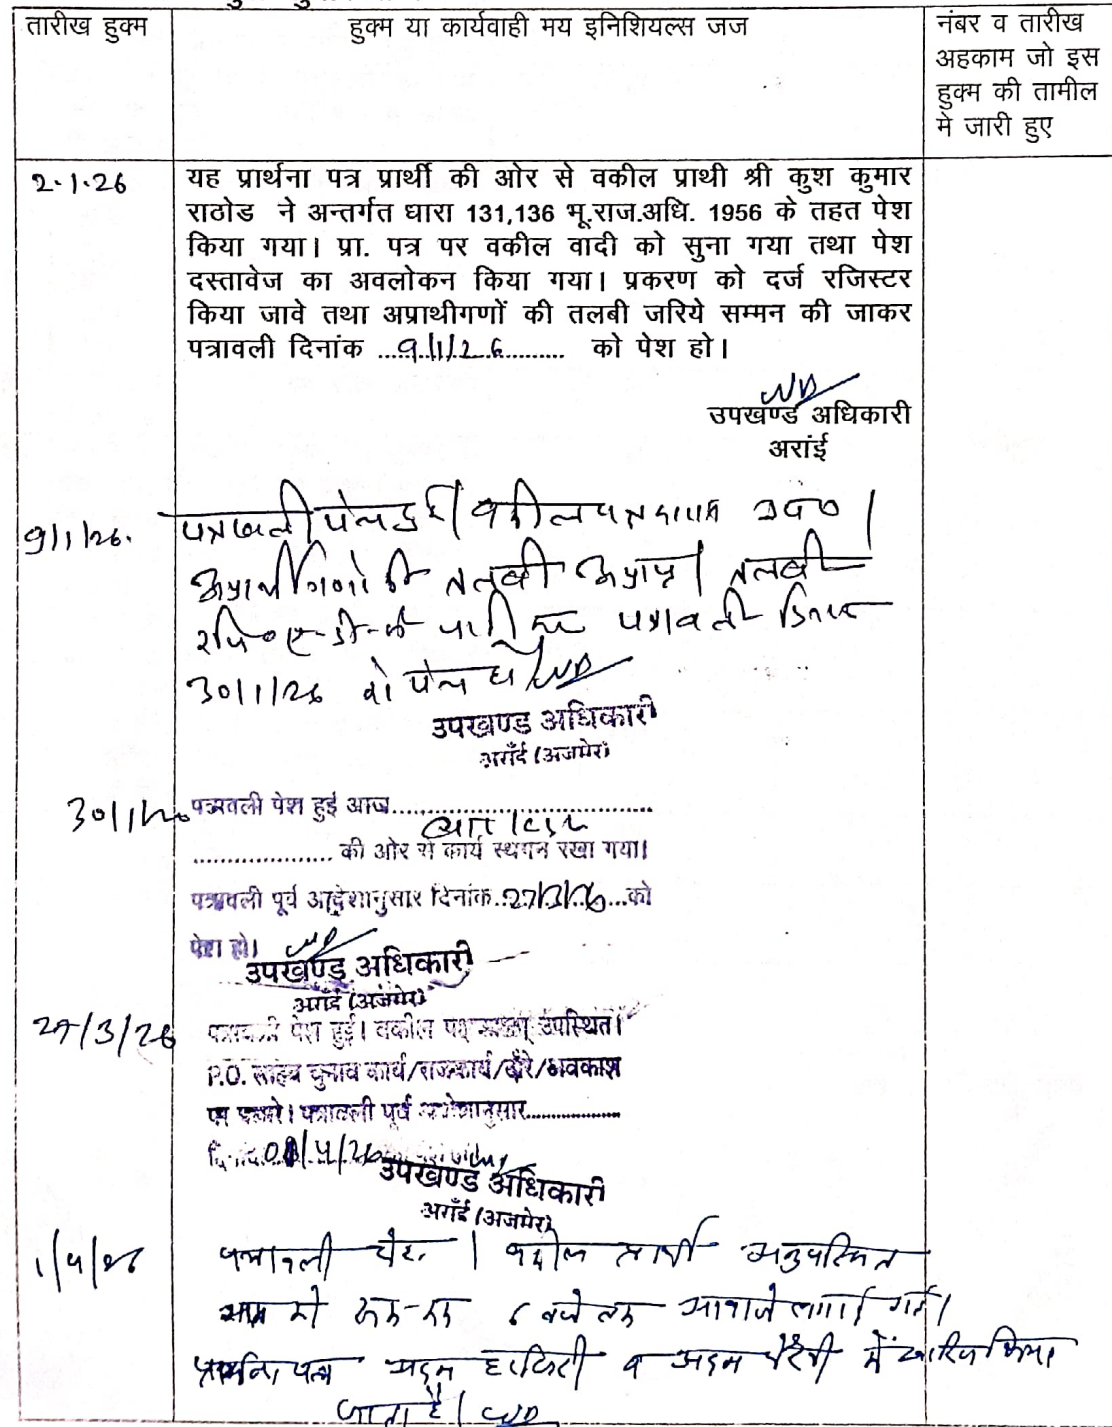 तारीख हुक्म
हुक्म या कार्यवाही मय इनिशियल्स जज
नंबर व तारीख
अहकाम जो इस
हुक्म की तामील
मे जारी हुए
2.1.26
यह प्रार्थना पत्र प्रार्थी की ओर से वकील प्राथी श्री कुश कुमार
राठोड ने अन्तर्गत धारा 131,136 भू.राज.अधि. 1956 के तहत पेश
किया गया। प्रा. पत्र पर वकील वादी को सुना गया तथा पेश
दस्तावेज का अवलोकन किया गया। प्रकरण को दर्ज रजिस्टर
किया जावे तथा अप्राथीगणों की तलबी जरिये सम्मन की जाकर
पत्रावली दिनांक ...9/1/26.......... को पेश हो।
उपखण्ड अधिकारी
अरांई
9/1/26.
पत्रावली पेश हुई। वकील
अप्रार्थीगणो की तलबी अप्राप्त। तलबी
पत्रावली दिनांक
30/1/26 को पेश हो।
उपखण्ड अधिकारी
अराँई (अजमेर)
30/1/26
पत्रावली पेश हुई आज..................................
.................... की ओर से कार्य स्थगन रखा गया।
पत्रावली पूर्व आदेशानुसार दिनांक..27/3/26...को
पेश हो।
उपखण्ड अधिकारी
अराँई (अजमेर)
27/3/26
पत्रावली पेश हुई। वकील उपस्थित।
P.O. साहब चुनाव कार्य/राजकार्य/दौरे/अवकाश
पर पधारे। पत्रावली पूर्व आदेशानुसार..................
01/4/26
उपखण्ड अधिकारी
अराँई (अजमेर)
1/4/26
पत्रावली पेश। वकील प्रार्थी अनुपस्थित
बजे तक आवाजे लगाई गई।
प्रार्थना पत्र अदम हाजिरी व अदम पैरवी में खारिज किया
जाता है।